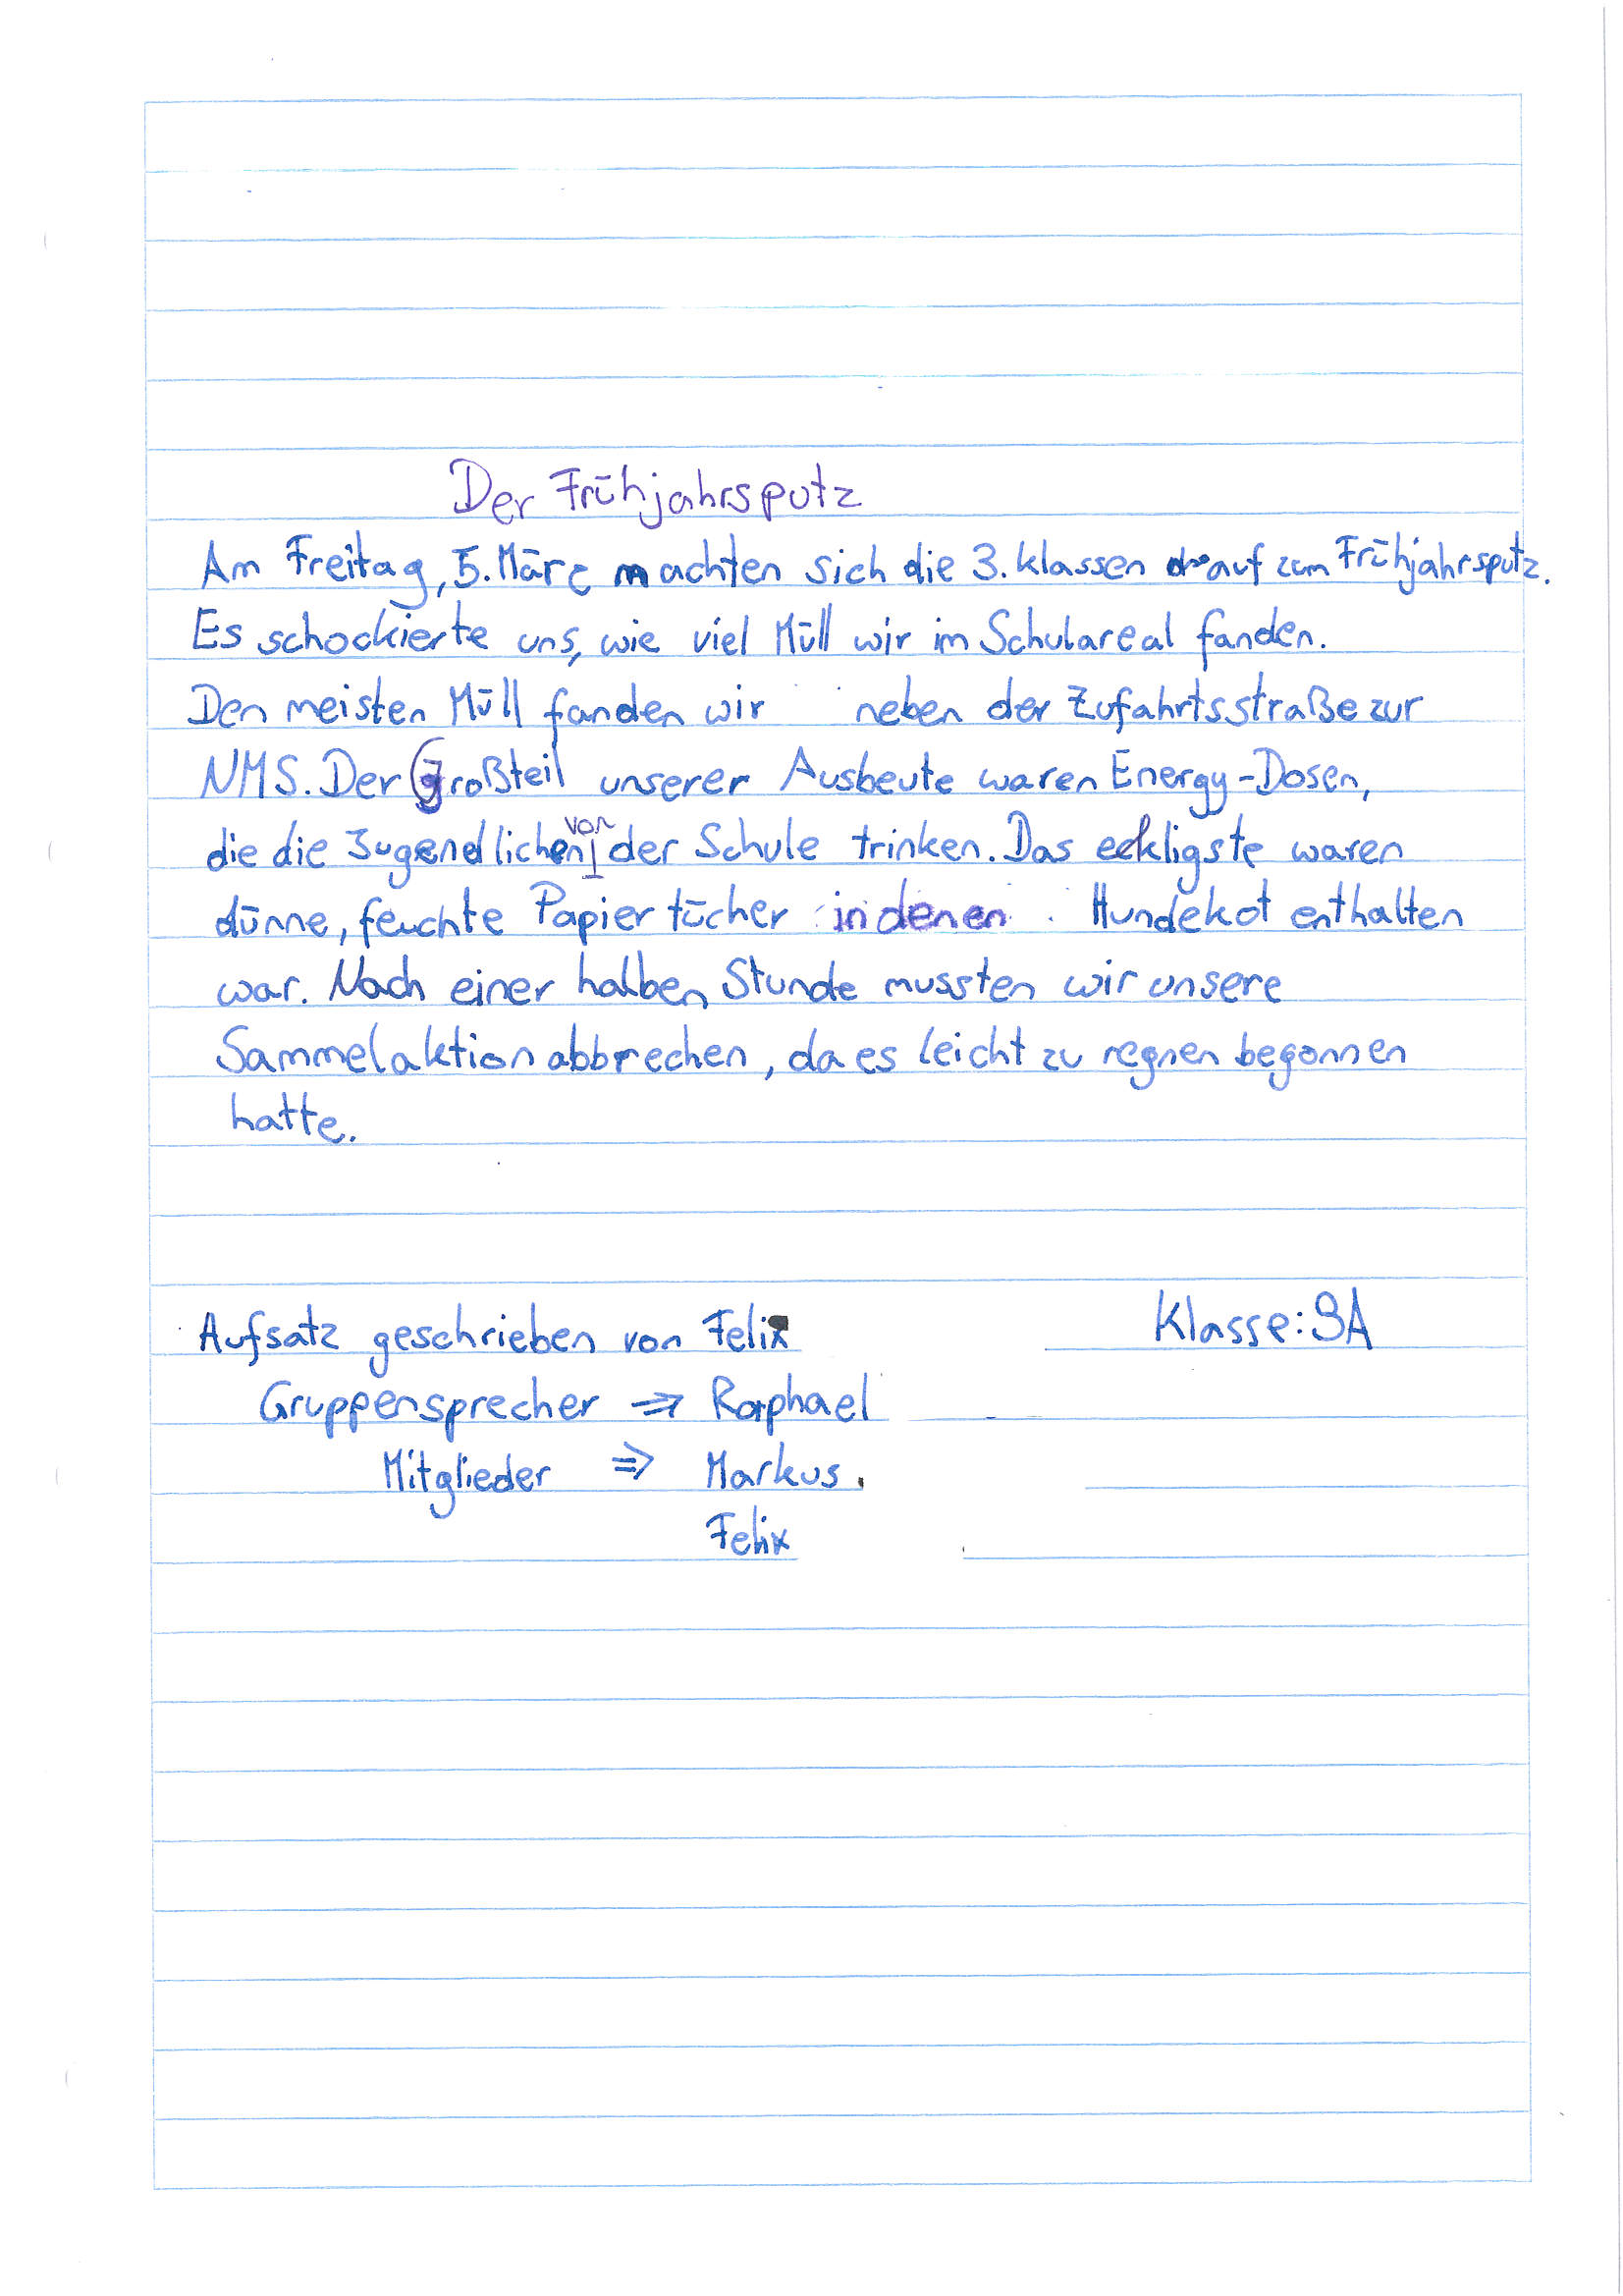 Der Frühjahrsputz
Am Freitag, 5. März machten sich die 3. Klassen auf zum Frühjahrsputz.
Es schockierte uns, wie viel Müll wir im Schulareal fanden.
Den meisten Müll fanden wir neben der Zufahrtsstraße zur
NMS. Der Großteil unserer Ausbeute waren Energy-Dosen,
die die Jugendlichen vor der Schule trinken. Das ekligste waren
dünne, feuchte Papiertücher in denen Hundekot enthalten
war. Nach einer halben Stunde mussten wir unsere
Sammelaktion abbrechen, da es leicht zu regnen begonnen
hatte.
Aufsatz geschrieben von Felix Klasse: 3A
Gruppensprecher ⇒ Raphael
Mitglieder ⇒ Markus
Felix